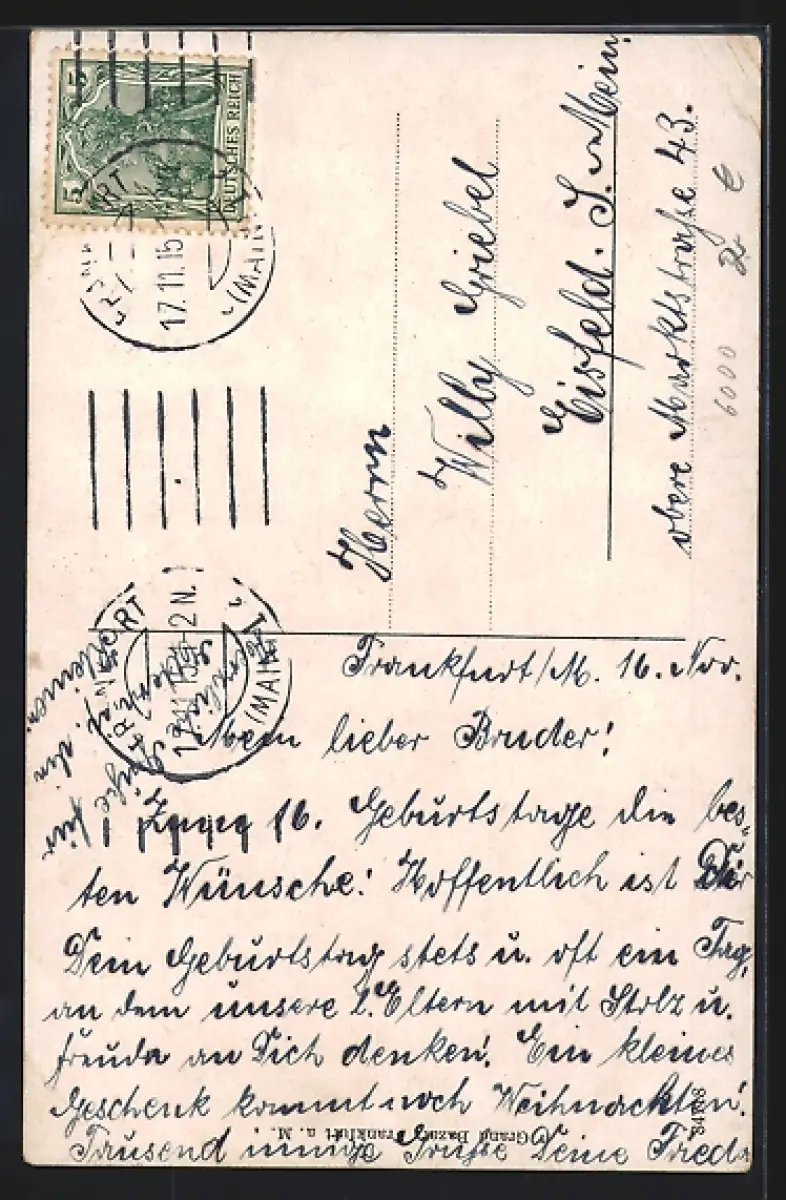 5 5
DEUTSCHES REICH
17.11.15
(MAIN)
Herrn
Willy Griebel
Eisfeld. S. Mein.
obere Marktstraße 43.
6000
2 N.
(MAIN)
Frankfurt/M. 16. Nov.
Mein lieber Bruder!
Zum 16. Geburtstage die bes-
ten Wünsche! Hoffentlich ist Dir
Dein Geburtstag stets u. oft ein Tag,
an dem unsere l. Eltern mit Stolz u.
freuda an Dich denken! Ein kleines
Geschenk kommt noch Weihnachten!
Tausend innige Grüße Deine Frieda
Grand Bazar Frankfurt a. M.
Grüße für
die